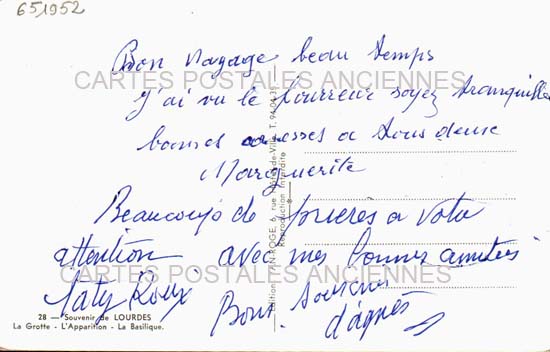 651952
Bon voyage beau temps
CARTES POSTALES ANCIENNES
J'ai vu le fourreur soyez tranquilles
bonnes caresses a tous deux
Marguerite
Beaucoup de prieres a votre
attention avec mes bonnes amities
CARTES POSTALES ANCIENNES
Katy Roux
Bons souvenirs
d'agnès
28 - Souvenir de LOURDES
La Grotte - L'Apparition - La Basilique.
Edition rue Hôtel-de-Ville T. 94.04.35
Reproduction Interdite